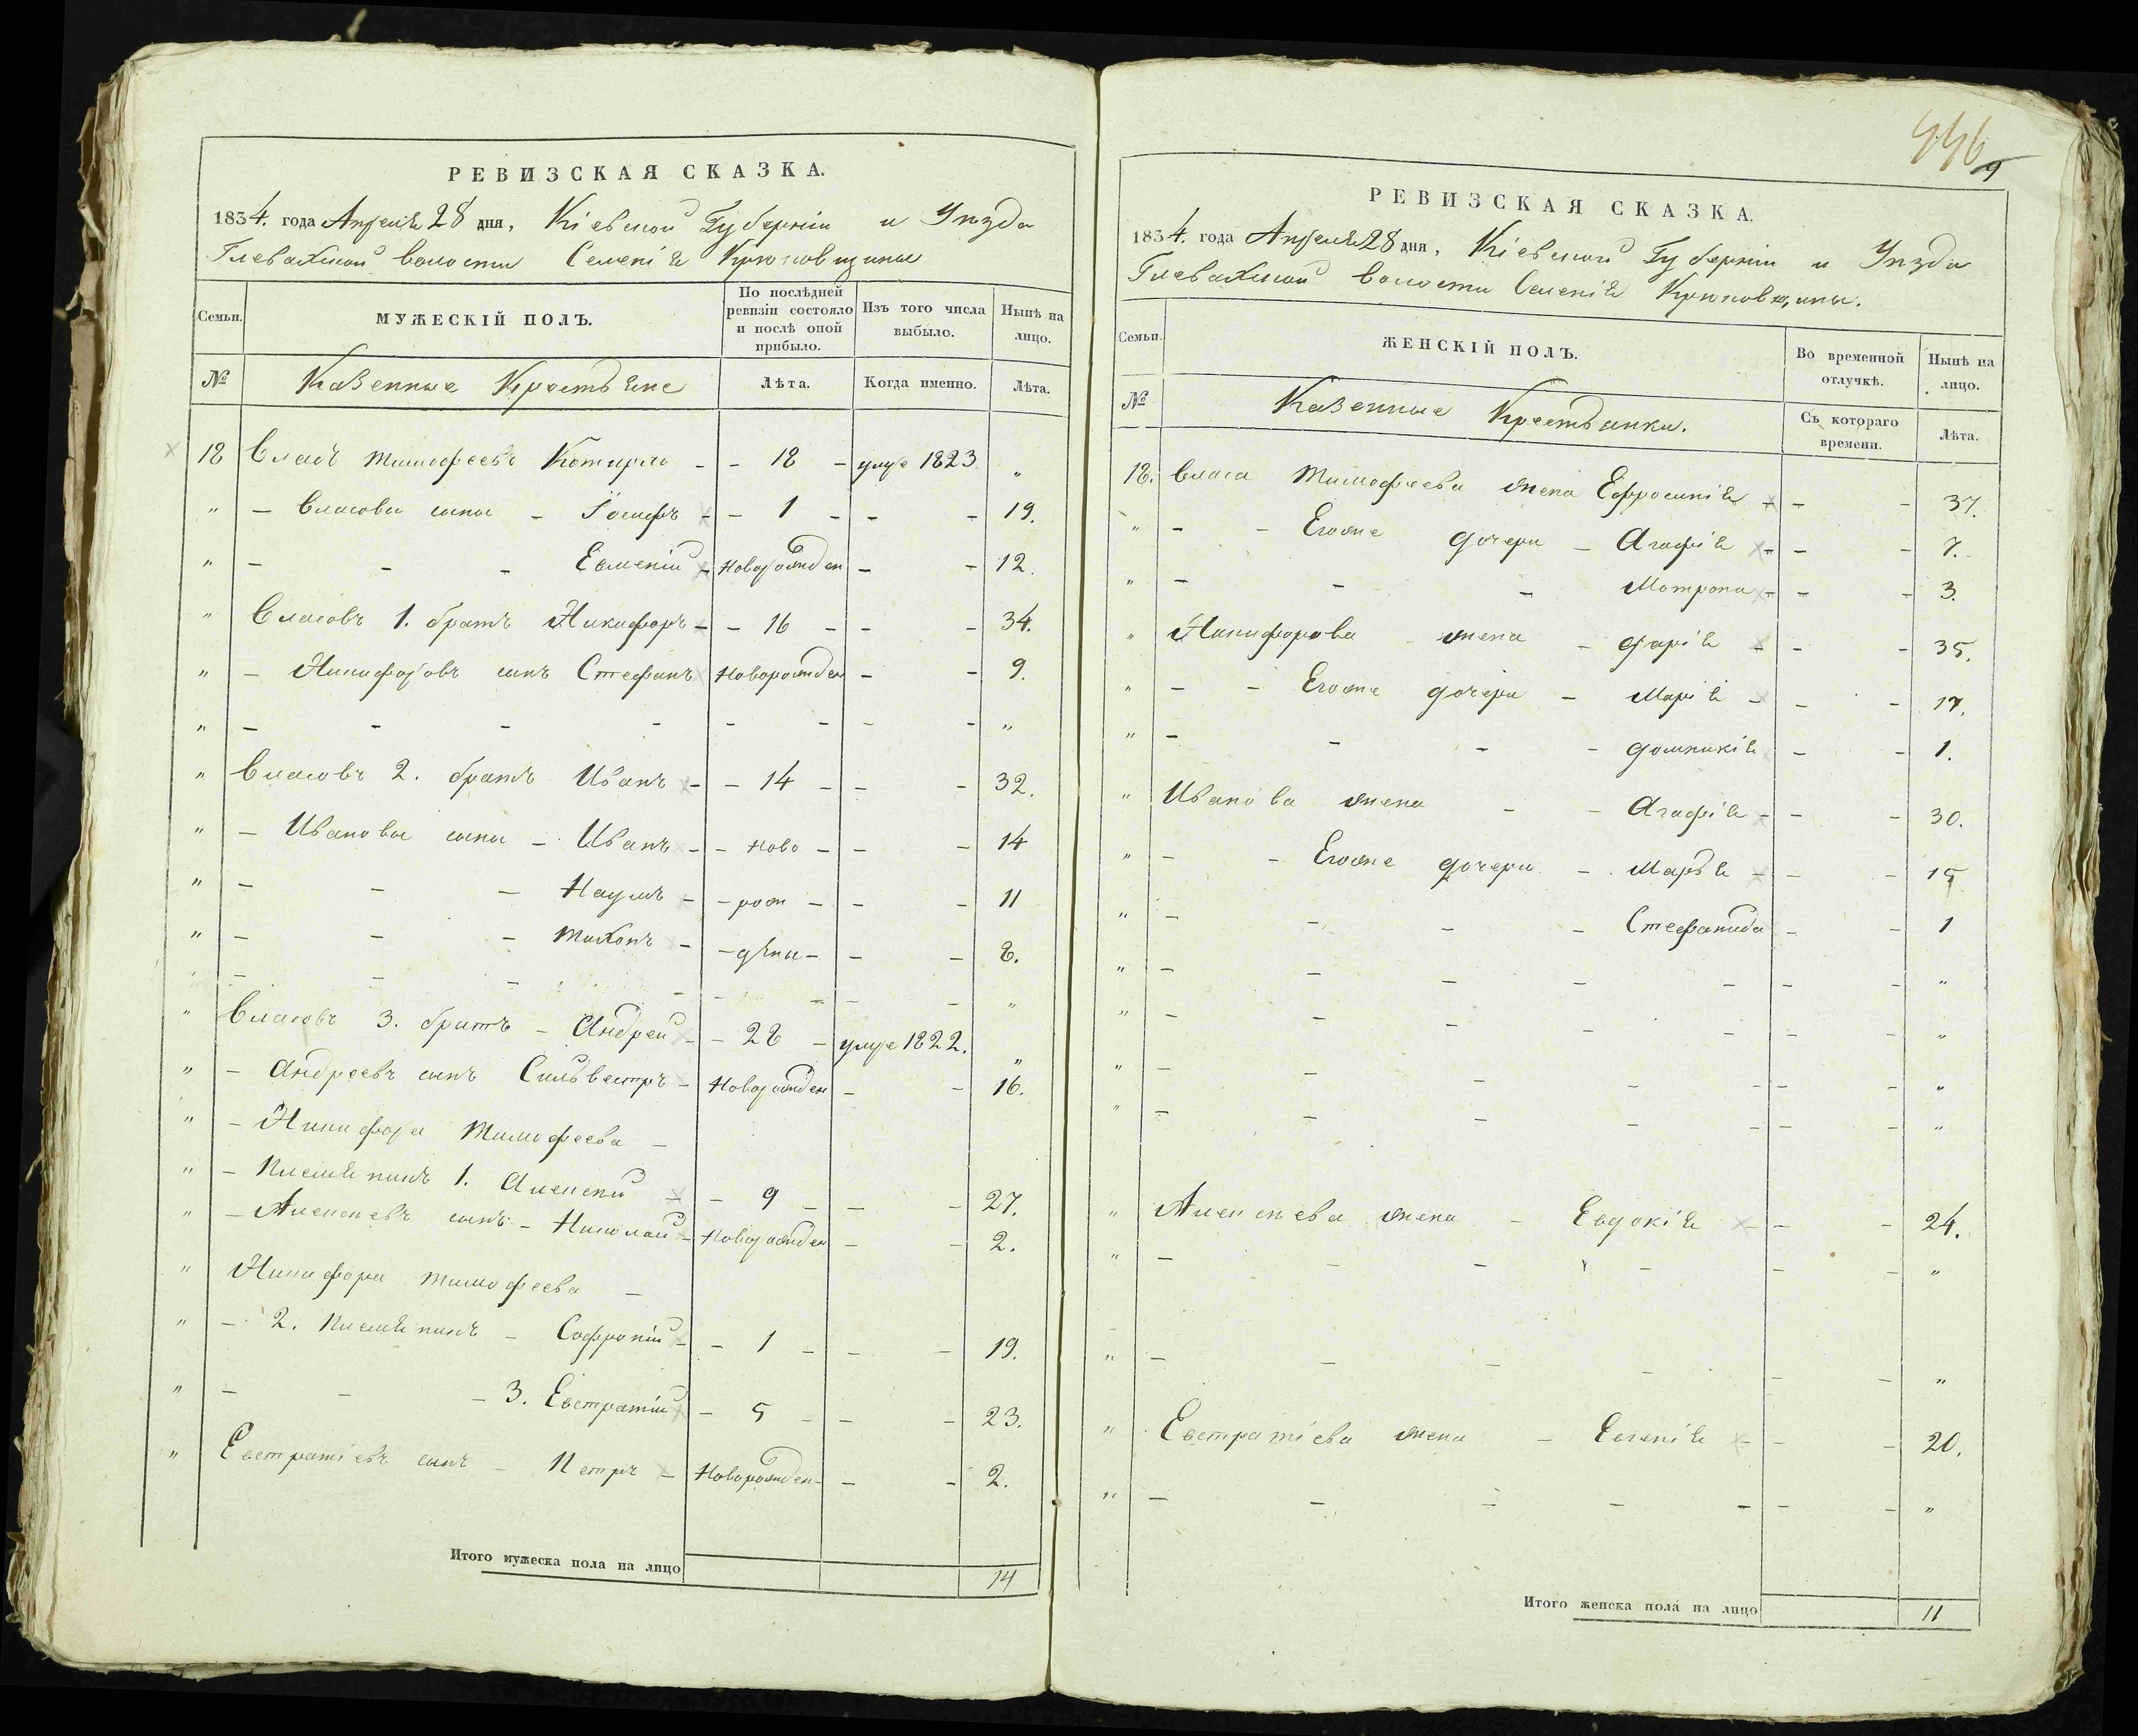 РЕВИЗСКАЯ СКАЗКА.
1834. года Апреля 28 дня, Кіевской Губерніи и Уѣзда
Глевахской волости Селенія Крюковщины
Семьи. МУЖЕСКІЙ ПОЛЪ. По послѣдней ревизіи состояло и послѣ оной прибыло. Изъ того числа выбыло. Нынѣ на лицо.
№ Казенные Крестьяне Лѣта. Когда именно. Лѣта.
18 Власъ Тимофеевъ - - 18 - умре 1823 "
" - Власовы сыны - Іосифъ - - 1 - - - 19.
" - - - Евменій - Новорожден - - 12.
" Власовъ 1. братъ Никифоръ - - 16 - - - 34.
" - Никифоровъ сынъ Стефанъ Новорожден - - 9.
" - - - - - - - - "
" Власовъ 2. братъ Иванъ - - 14 - - - 32.
" - Ивановы сыны - Иванъ - - ново - - - 14
" - - - Наумъ - - рож - - - 11
" - - - Тихонъ - - дены - - - 8.
" - - - - - - - - "
" Власовъ 3. братъ - Андрей - - 28 - умре 1822. "
" - Андреевъ сынъ Сильвестръ - Новорожден - - 16.
" - Никифора Тимофеева -
" - Племянникъ 1. Алексей - - 9 - - - 27.
" - Алексеевъ сынъ - Николай - Новорожден - - 2.
" Никифора Тимофеева -
" - 2. Племянникъ - Софроній - - 1 - - - 19.
" - - - 3. Евстратій - 5 - - - 23.
" Евстратіевъ сынъ - Петръ - Новорожден - - - 2.
Итого мужеска пола на лицо 14
446
9
РЕВИЗСКАЯ СКАЗКА.
1834. года Апреля 28 дня, Кіевской Губерніи и Уѣзда
Глевахской волости Селенія Крюковщины.
Семьи. ЖЕНСКІЙ ПОЛЪ. Во временной отлучкѣ. Нынѣ на лицо.
№ Казенные Крестьянки. Съ котораго времени. Лѣта.
18. Власа Тимофеева жена Ефросинія - - - 37.
" - - Егоже дочери - Агафія - - - 7.
" - - - Мотрона - - - 3.
" Никифорова - жена - Дарія - - - 35.
" - - Егоже дочери - Марія - - - 17.
" - - - - Домникія - - 1.
" Иванова жена - - Агафія - - - 30.
" - - Егоже дочери - Марья - - - 15
" - - - - Стефанида - - 1
" - - - - - - - "
" - - - - - - - "
" - - - - - - - "
" - - - - - - - "
" Алексеева жена - Евдокія - - - 24.
" - - - - - - "
" - - - - - - "
" Евстратіева жена - Евгенія - - - 20.
" - - - - - - - "
Итого женска пола на лицо 11